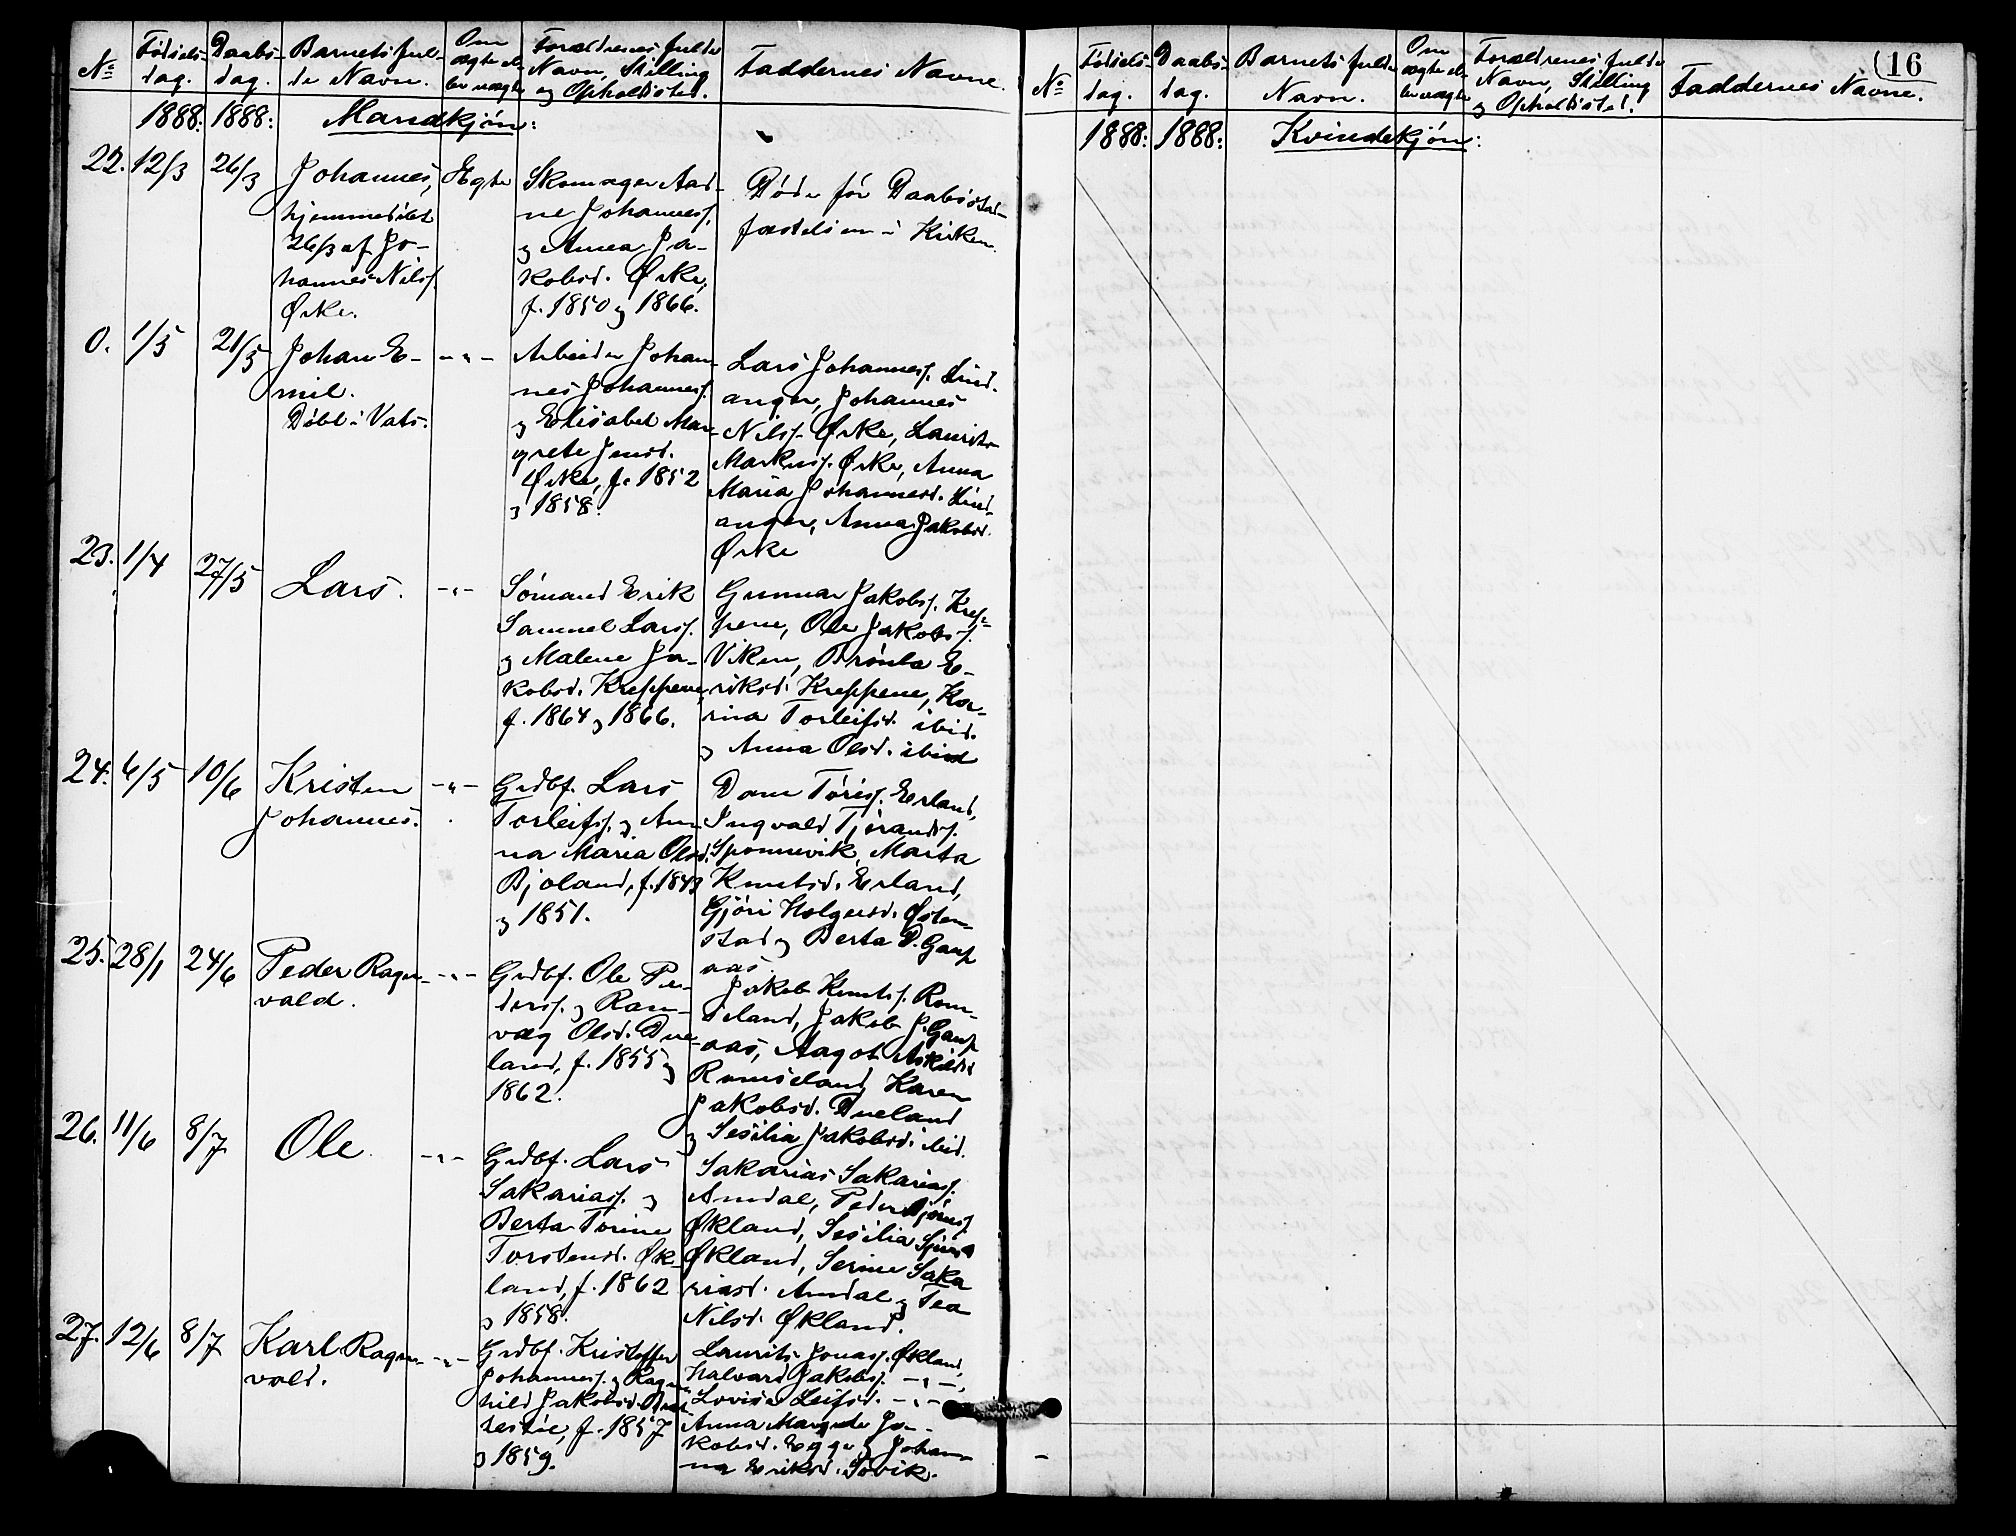 No
Fødsels-
dag.
Daabs-
dag.
Barnets ful-
de Navn.
Om
ægte el-
ler uægte
Forældrenes fulde
Navn, Stilling
og Opholdssted.
Faddernes Navne.
1888: 1888: Mandkjøn:
22. 12/3 26/3
Johannes,
hjemmedøbt
26/3 af Jo-
hannes Nilss.
Ørke.
Egte
Skomager Aad-
ne Johanness.
og Anna Ja-
kobsd. Ørke,
f. 1850 og 1866.
Døde før Daabsstad-
fæstelsen i Kirken.
0. 1/5 21/5
Johan E-
mil.
Døbt i Vats.
-"-
Arbeider Johan-
nes Johanness.
og Elisabet Mar-
grete Jensd.
Ørke, f. 1852
og 1858.
Lars Johanness. Lind-
anger, Johannes
Nilss. Ørke, Laurits
Markuss. Ørke, Anna
Maria Johannesd. Lind-
anger, Anna Jakobsd.
Ørke
23. 1/4 27/5
Lars.
-"-
Sømand Erik
Samuel Larss.
og Malene Ja-
kobsd. Kreppene,
f. 1864 og 1866.
Gunnar Jakobss. Krep-
pene, Ole Jakobss.
Viken, Brønla E-
riksd. Kreppene, Kar-
rina Torleifsd. ibid.
og Anna Olsd. ibid
24. 6/5 10/6
Kristen
Johannes.
-"-
Grdbf. Lars
Torleifss. og An-
na Maria Olsd.
Bjoland, f. 1848
og 1851.
Dane Tøriss. Erland,
Ingvald Tjerands.
Sponnevik, Marta
Knutsd. Erland,
Gjøri Holgersd. Østen-
stad og Berta D. Gaup
aas.
25. 28/1 24/6
Peder Ragn-
vald.
-"-
Grdbf. Ole Pe-
derss. og Ran-
væg Olsd. Due-
land, f. 1855 og
1862.
Jakob Knutss. Rom-
seland, Jakob J. Gaup
aas, Aagot Askildsd
Romseland, Karen
Jakobsd. Dueland
og Sesilia Jakobsd. ibid.
26. 11/6 8/7
Ole
-"-
Grdbf. Lars
Sakariass. og
Berta Torine
Torstensd. Øk-
land, f. 1862
og 1858.
Sakarias Sakariass.
Amdal, Peder Bjørns.
Økland, Sesilia
Økland, Serine Saka
riasd. Amdal og Tea
Nilsd. Økland.
27. 12/6 8/7
Karl Ragn-
vald.
-"-
Grdbf. Kristoffer
Johanness. og Ragn-
hild Jakobsd.
f. 1857
og 1859.
Laurits Jonass. Økland,
Halvard Jakobss. -"-,
Lovise Leifsd. -"-
Anna Margrete Ja-
kobsd. Egge og Johan-
na Eriksd. Søvik.
16
No
Fødsels-
dag.
Daabs-
dag.
Barnets fulde
Navn.
Om
ægte el-
ler uægte
Forældrenes fulde
Navn, Stilling
og Opholdssted.
Faddernes Navne.
1888: 1888: Kvindekjøn: